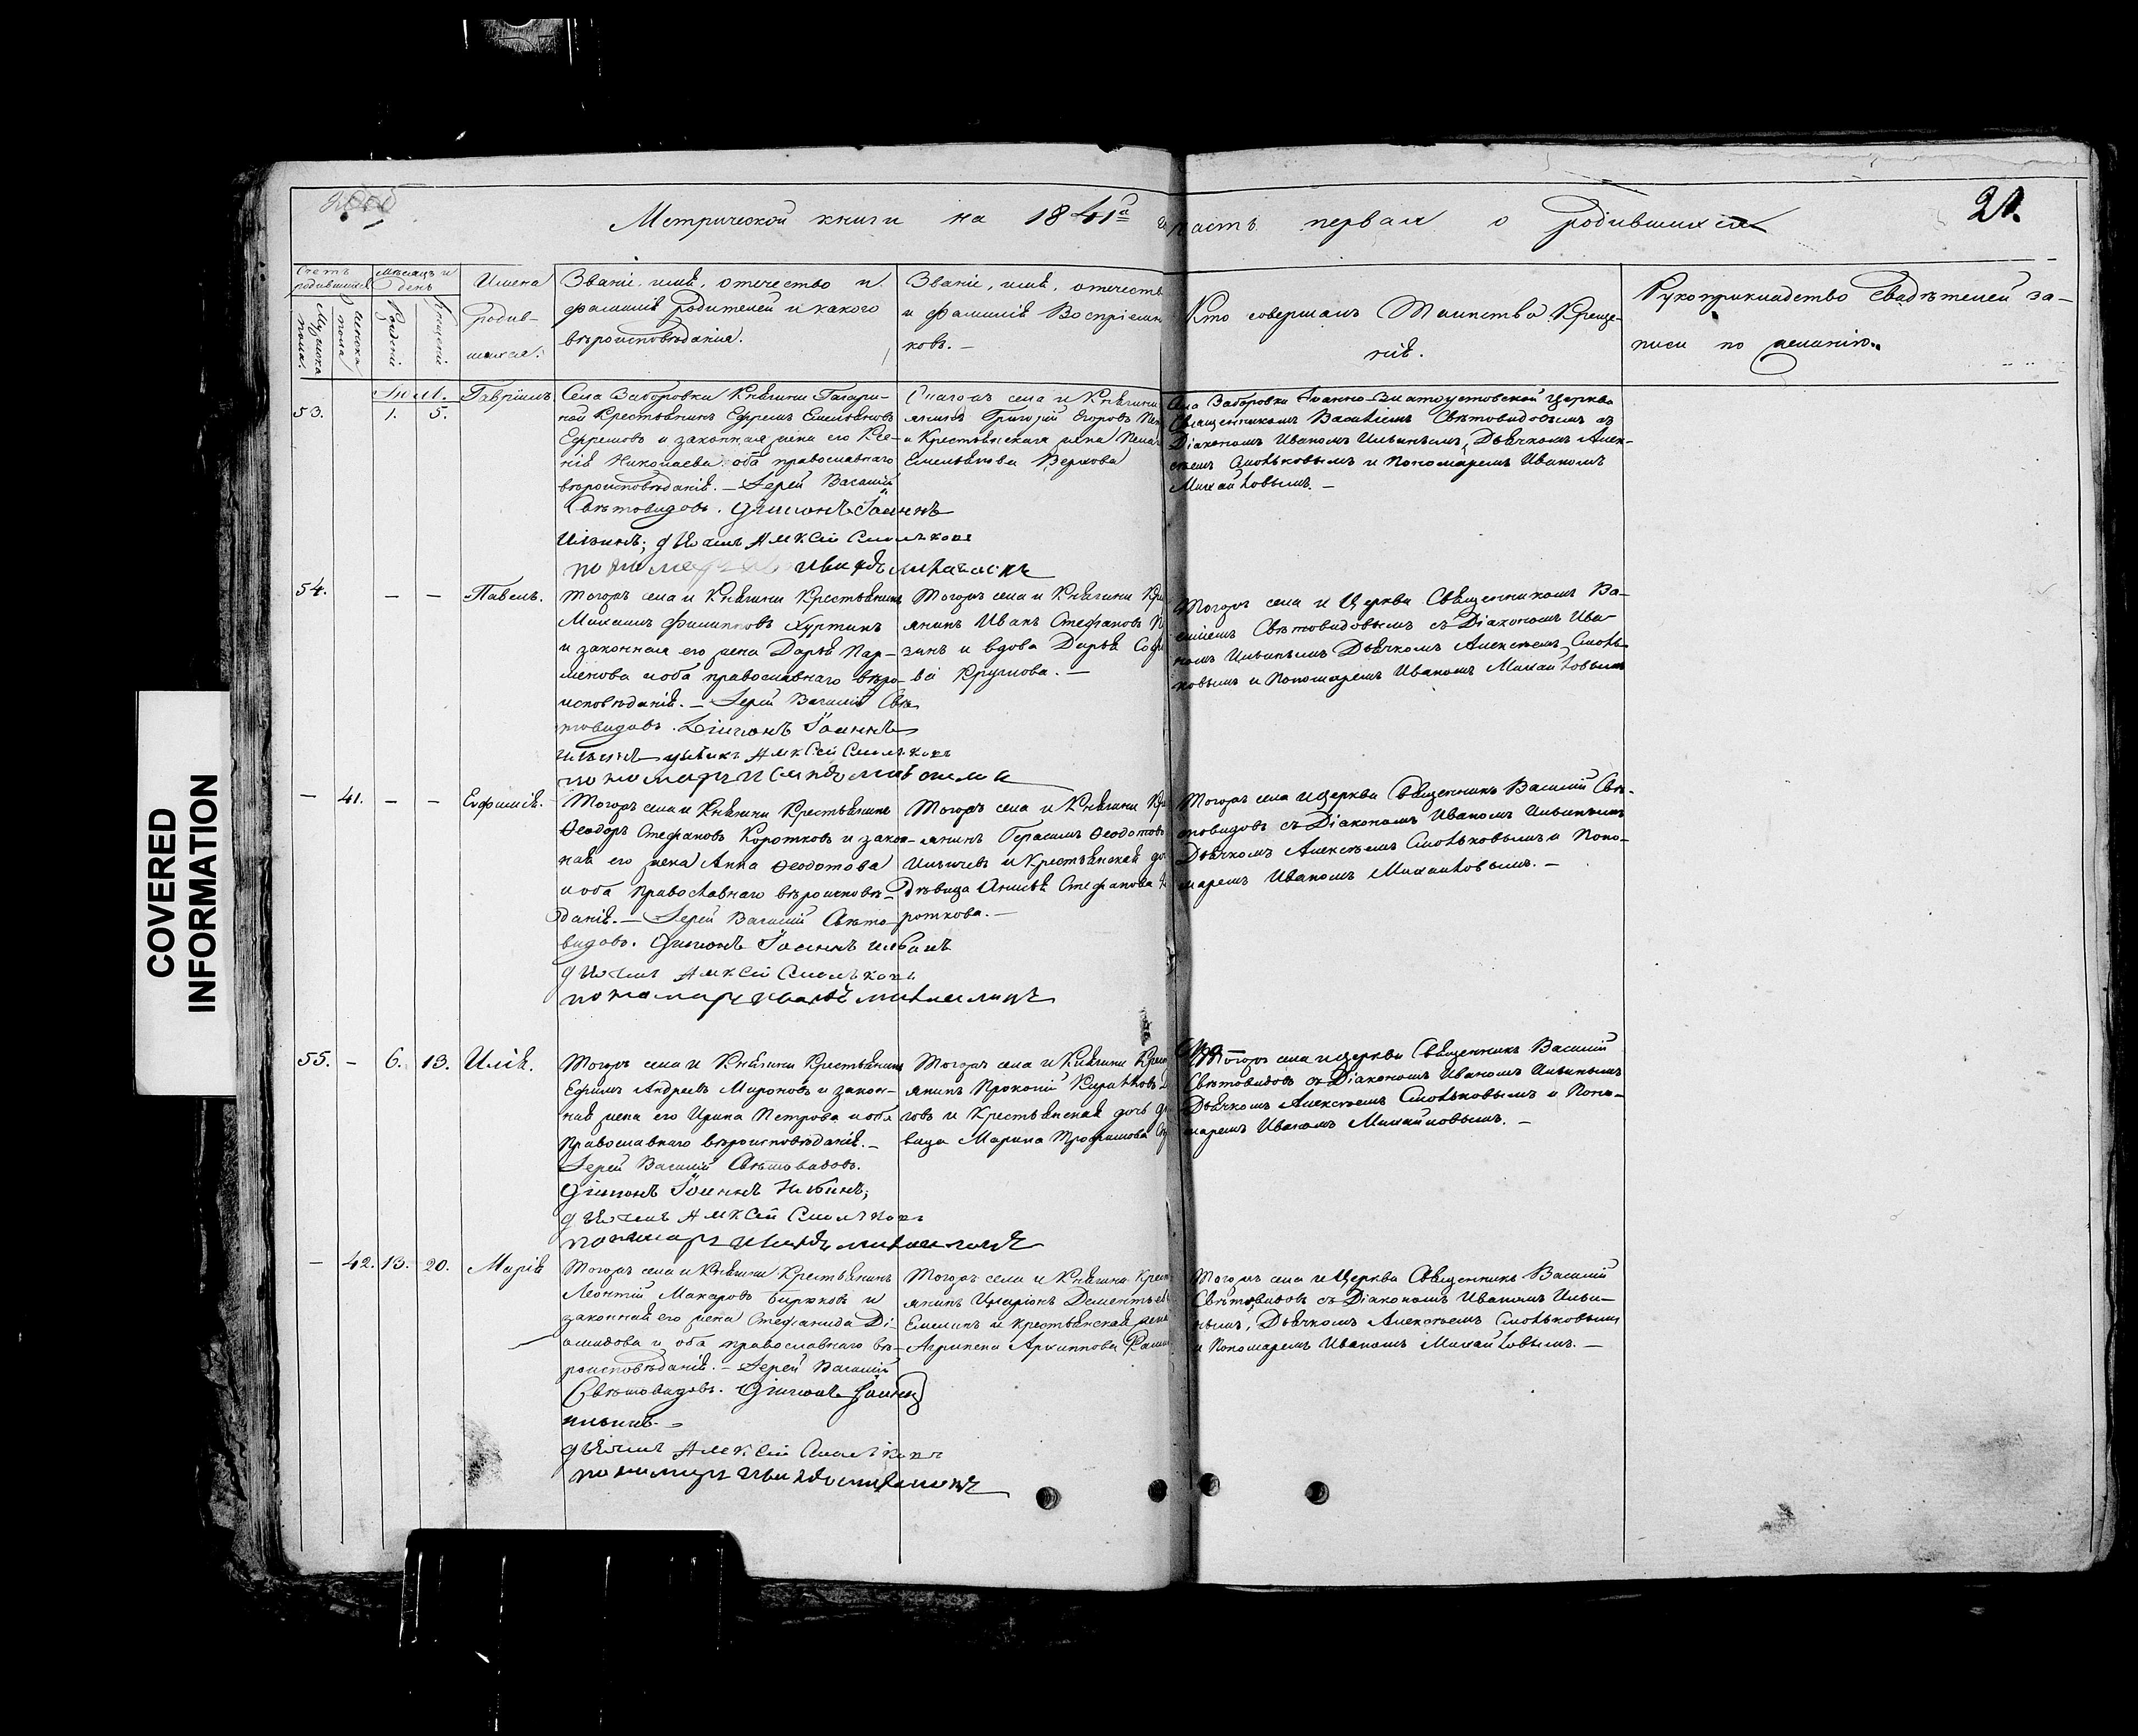 Метрической книги на 1841й часть первая о родившихся
21.
Счетъ родившихся
Мужеска пола.
Женска пола
Мѣсяцъ и день
Рожденія
Крещенія
Имена родив-
шихся.
Званіе, имя, отечество и
фамилія родителей и какого
вѣроисповѣданія.
Званіе, имя, отечеств
и фамилія Воспріемни
ковъ. —
Кто совершалъ Таинство Креще-
нія.
Рукоприкладство свидѣтелей за-
писи по желанію.
Іюль.
53.
1. 5.
Гавріилъ
Села Заборовки Княгини Гагари-
ной Крестьянинъ Ефремъ Емельяновъ
Ефремовъ и законная жена его Ксе-
нія Николаева оба православнаго
вѣроисповѣданія. — Іерей Василій
Свѣтовидовъ. Діаконъ Іоаннъ
Ильинъ; дьячекъ Алексѣй Смольковъ
пономарь Иванъ
села и Княгини
янинъ Григорій Егоровъ
и Крестьянская жена
Емельянова Верхова
Села Заборовки Іоанно-Златоустовской церкви
Священникомъ Василіемъ Свѣтовидовымъ съ
Діакономъ Иваномъ Ильинымъ, Дьячкомъ Алек-
сѣемъ Смольковымъ и Пономаремъ Иваномъ
Михайловымъ. —
54.
— —
Павелъ.
Тогожъ села и Княгини Крестьянинъ
Михаилъ Филипповъ Хуртинъ
и законная его жена Дарья Пар-
менова и оба православнаго вѣро-
исповѣданія. — Іерей Василій Свѣ-
товидовъ. Діаконъ Іоаннъ
Ильинъ дьячекъ Алексѣй Смольковъ
пономарь
Тогожъ села и Княгини Кре
янинъ Иванъ Стефановъ
зинъ и вдова Дарья
ва Круглова. —
Тогожъ села и Церкви Священникомъ Ва-
силіемъ Свѣтовидовымъ съ Діакономъ Ива-
номъ Ильинымъ Дьячкомъ Алексѣемъ Смоль-
ковымъ и Пономаремъ Иваномъ Михайловымъ
— 41. — —
Евфимія.
Тогожъ села и Княгини Крестьянинъ
Ѳеодоръ Стефановъ Коротковъ и закон-
ная его жена Анна Ѳеодотова
и оба православнаго вѣроисповѣ-
данія. — Іерей Василій Свѣто-
видовъ. Діаконъ Іоаннъ Ильинъ
дьячекъ Алексѣй Смольковъ
пономарь Иванъ
Тогожъ села и Княгини Кре
янинъ Герасимъ Ѳеодотовъ
Ильичевъ и Крестьянская до
дѣвица Анисья Стефанова Ко
роткова. —
Тогожъ села и Церкви Священникъ Василій Свѣ-
товидовъ съ Діакономъ Иваномъ Ильинымъ
Дьячкомъ Алексѣемъ Смольковымъ и Поно-
маремъ Иваномъ Михайловымъ. —
55. — 6. 13.
Илія.
Тогожъ села и Княгини Крестьянинъ
Ефимъ Андреевъ Мироновъ и закон-
ная жена его Ирина Петрова и оба
православнаго вѣроисповѣданія. —
Іерей Василій Свѣтовидовъ.
Діаконъ Іоаннъ Ильинъ;
дьячекъ Алексѣй Смольковъ
пономарь Иванъ
Тогожъ села и Княгини Крест
янинъ Прокопій
говъ и Крестьянская дочь дѣ
вица Марина Трофимова
Тогожъ села и Церкви Священникъ Василій
Свѣтовидовъ съ Діакономъ Иваномъ Ильинымъ
Дьячкомъ Алексѣемъ Смольковымъ и Поно-
маремъ Иваномъ Михайловымъ. —
— 42. 13. 20.
Марія
Тогожъ села и Княгини Крестьянинъ
Леонтій Макаровъ Бирюковъ и
законная его жена Стефанида Ді-
амидова и оба православнаго вѣ-
роисповѣданія. — Іерей Василій
Свѣтовидовъ. Діаконъ Іоаннъ
Ильинъ. —
дьячекъ Алексѣй Смольковъ
пономарь Иванъ
Тогожъ села и Княгини Крест
янинъ Иларіонъ Дементьевъ
Емелинъ и крестьянская жена
Агрипена Архиппова
Тогожъ села и Церкви Священникъ Василій
Свѣтовидовъ съ Діакономъ Иваномъ Ильи-
нымъ, Дьячкомъ Алексѣемъ Смольковымъ
и Пономаремъ Иваномъ Михайловымъ. —
COVERED
INFORMATION